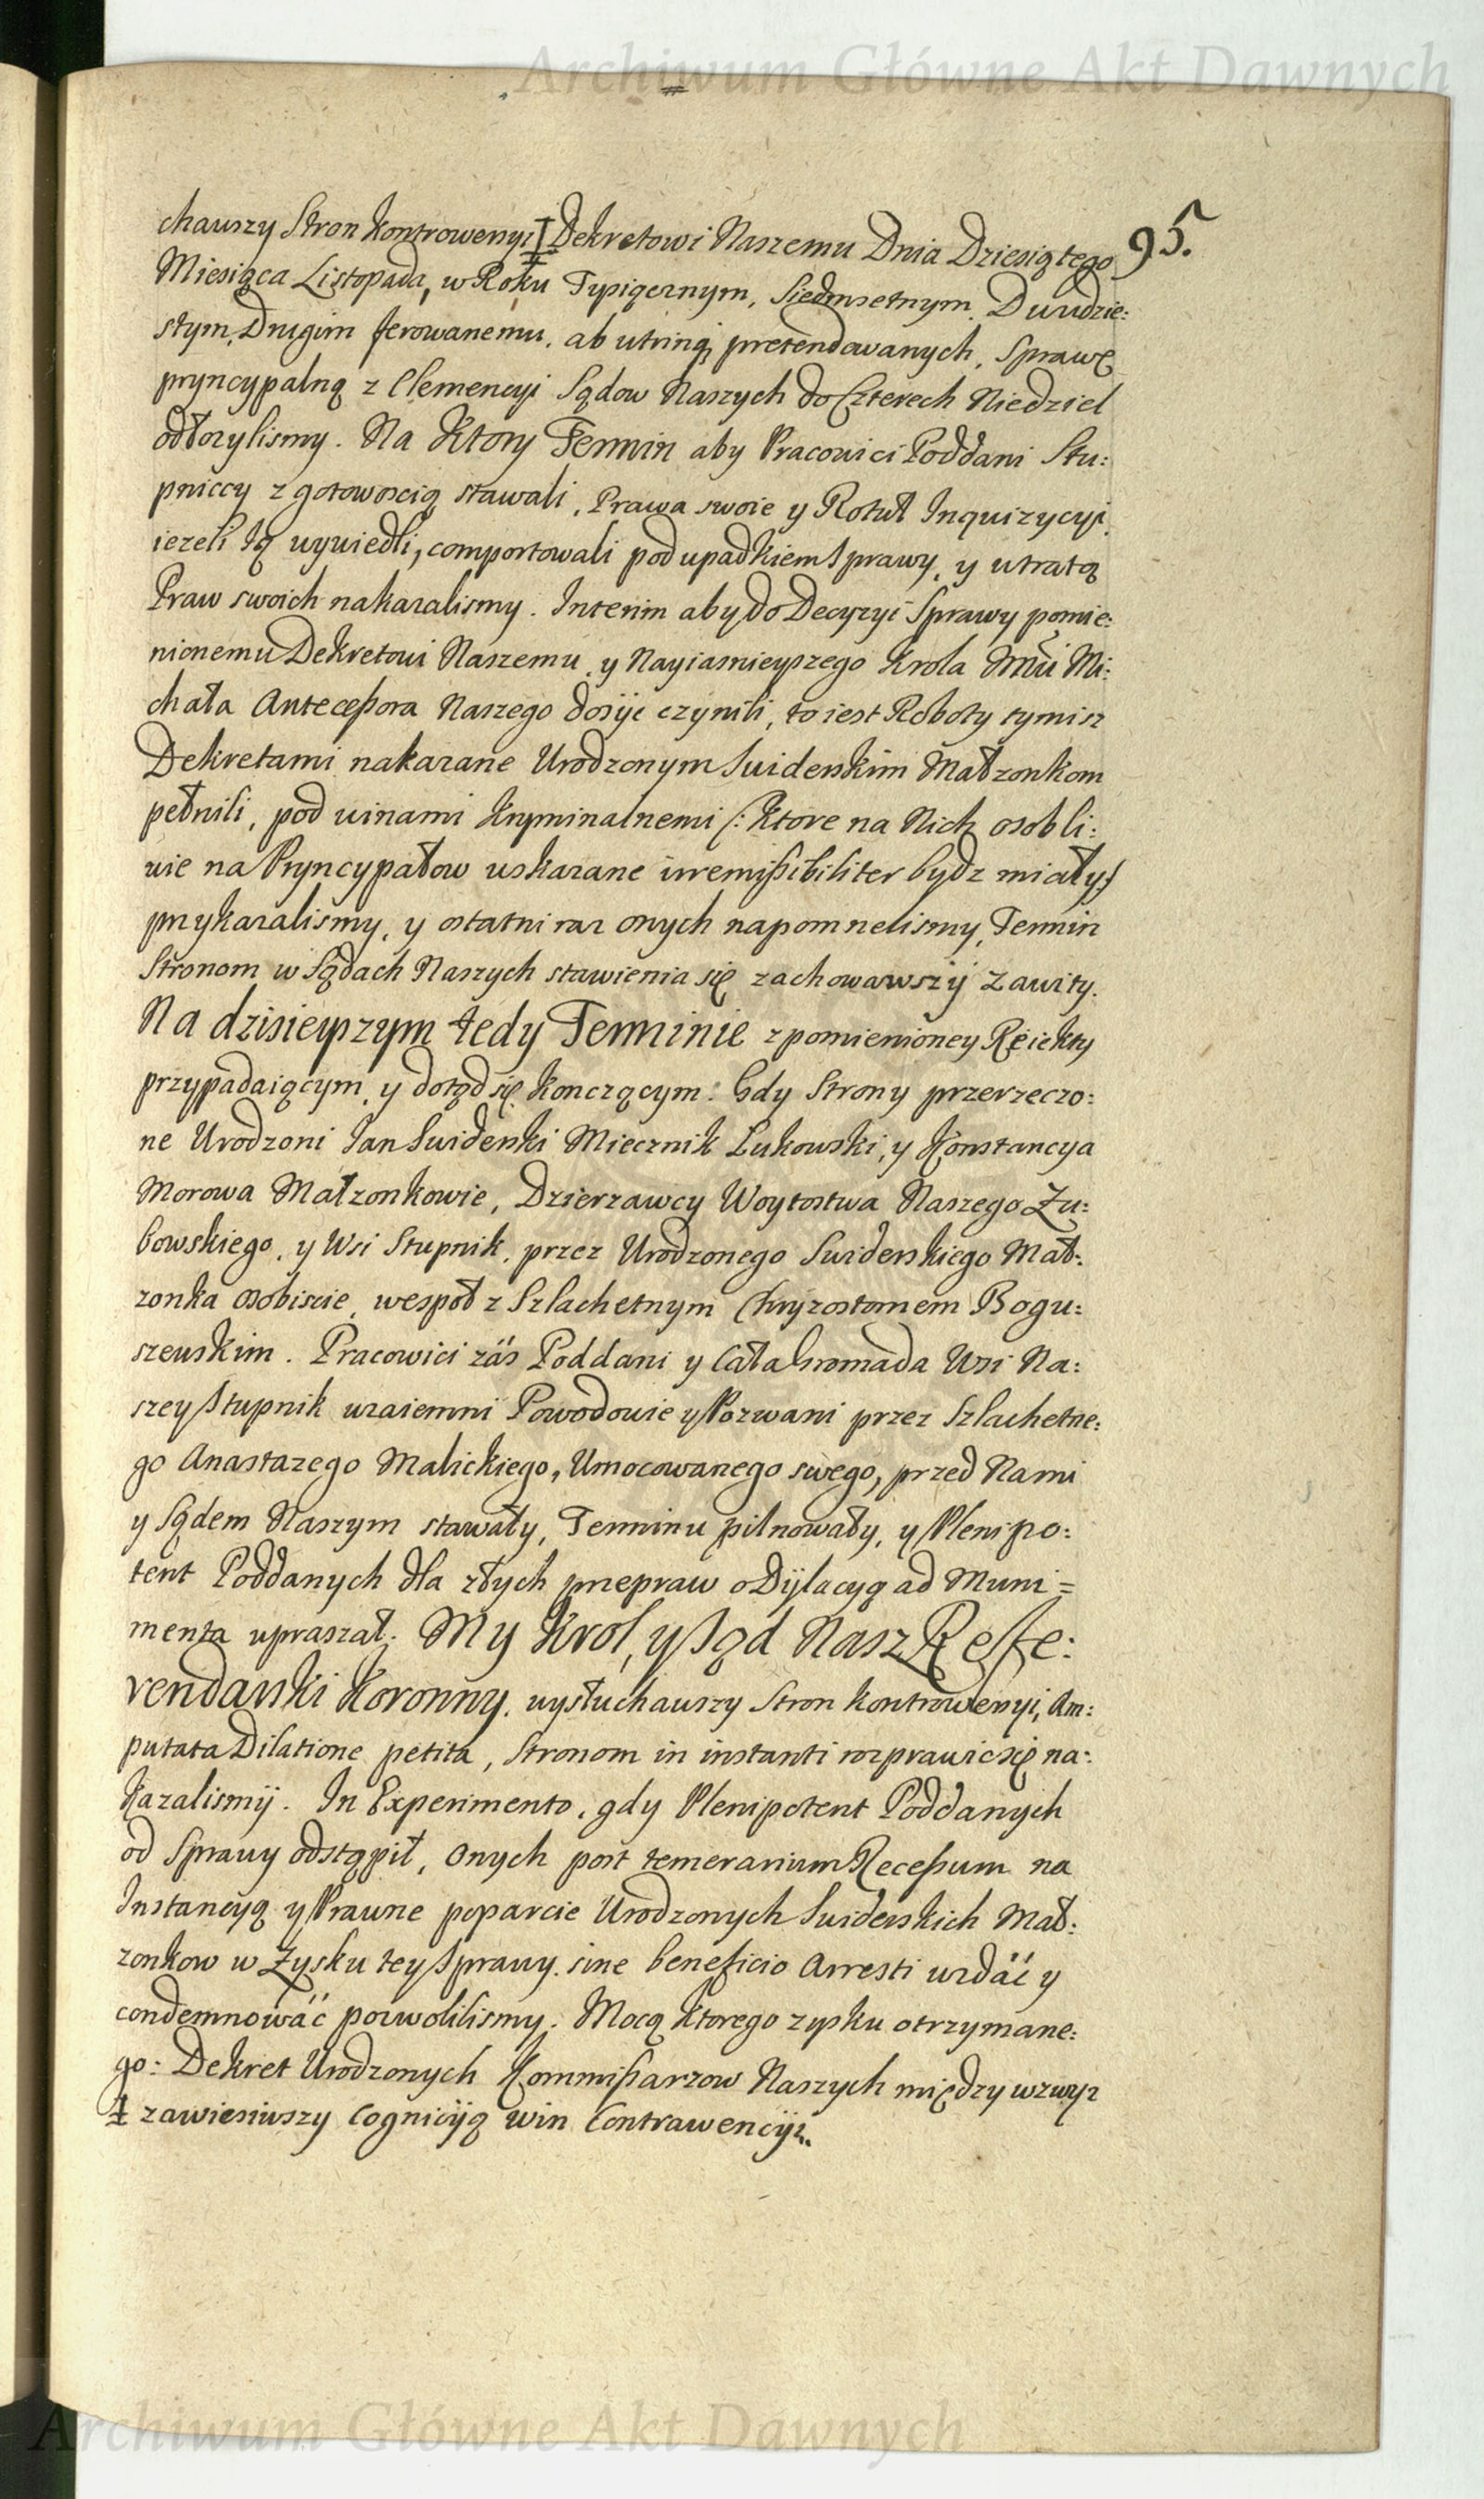 Archiwum Główne Akt Dawnych
95.
chauszy Stron kontrowersyi ‡ Dekretowi Naszemu Dnia Dziesiątego
Miesiąca Listopada, w Roku Tysiącznym, Siedmsetnym, Dwudzie:
stym, Drugim ferowanemu, ab utrinq; pretendowanych, Sprawę
pryncypalną z Clemencyi Sądow Naszych do Czterech Niedziel
odłozylismy. Na Ktory Termin aby Pracowici Poddani Stu:
pniccy z gotowoscią stawali, Prawa swoie y Rotuł Inquizycyi,
iezeli Ią wywiedli, comportowali pod upadkiem Sprawy, y utratą
Praw swoich nakazalismy. Interim aby do Decyzyi Sprawy pomie:
nionemu Dekretowi Naszemu, y Nayiasnieyszego Krola Mci Mi:
chała Antecessora Naszego dosyc czynili, to iest Roboty tymisz
Dekretami nakazane Urodzonym Swiderskim Małzonkom
pełnili, pod winami kryminalnemi /: Ktore na Nich osobli:
wie na Pryncypałow uskazane irremissibiliter bydz miały :/
przykazalismy, y ostatni raz onych napomnelismy, Termin
Stronom w Sądach Naszych stawienia się zachowawszy Zawity.
Na dzisieyszym tedy Terminie z pomienioney Reiekty
przypadaiącym, y dotąd się konczącym: Gdy Strony przerzeczo:
ne Urodzoni Ian Swiderski Miecznik Łukowski, y Konstancya
Morowa Małzonkowie, Dzierzawcy Woytostwa Naszego Zu:
bowskiego, y Wsi Stupnik, przez Urodzonego Swiderskiego Mał:
zonka osobiscie, wespoł z Szlachetnym Chryzostomem Bogu:
szewskim. Pracowici zás Poddani y Cała Gromada Wsi Na:
szey Stupnik wzaiemni Powodowie y Pozwani przez Szlachetne:
go Anastazego Malickiego, Umocowanego swego, przed Nami
y Sądem Naszym stawały, Terminu pilnowały, y Plenipo:
tent Poddanych dla złych przepraw o Dylacyą ad Muni=
menta upraszał. My Krol, y Sąd Nasz Refe:
rendarski Koronny, wysłuchawszy Stron kontrowersyi, Am:
putata Dilatione petita, Stronom in instanti rozprawic się na:
kazalismy. In Experimento, gdy Plenipotent Poddanych
od Sprawy odstąpił, Onych post temerarium Recessum na
Instancyą y Prawne poparcie Urodzonych Swiderskich Mał:
zonkow w Zysku tey Sprawy, sine beneficio Arresti wzdáć y
condemnowáć pozwolilismy. Mocą Ktorego zysku otrzymane:
go: Dekret Urodzonych Kommissarzow Naszych między wzwyz
‡ zawiesiwszy Cognicyą win Contrawencyi.
Archiwum Główne Akt Dawnych